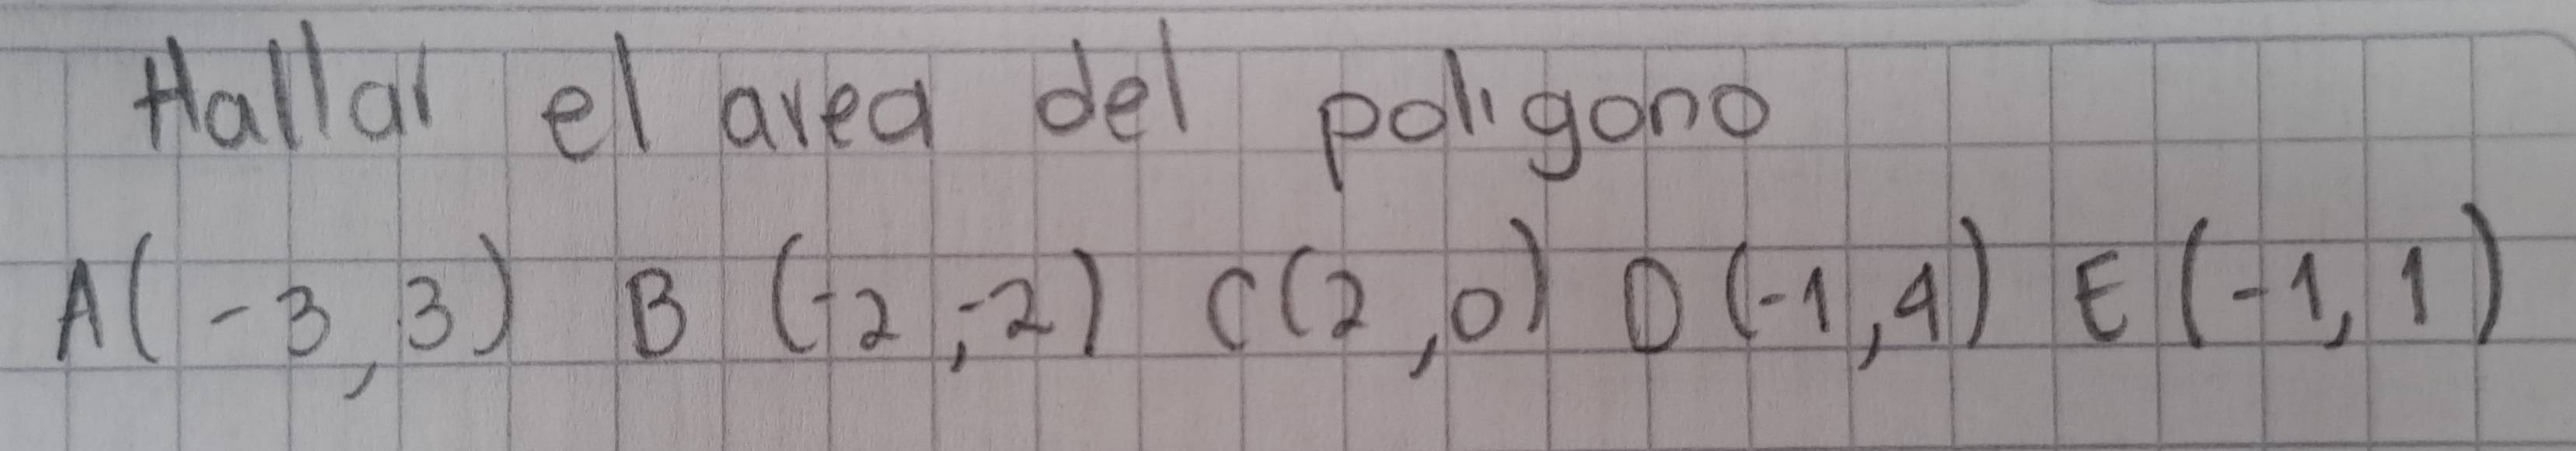 Hallar el area del poligono
A(-3,3) B (-2,-2) C(2,0) D(-1,4) E(-1,1)